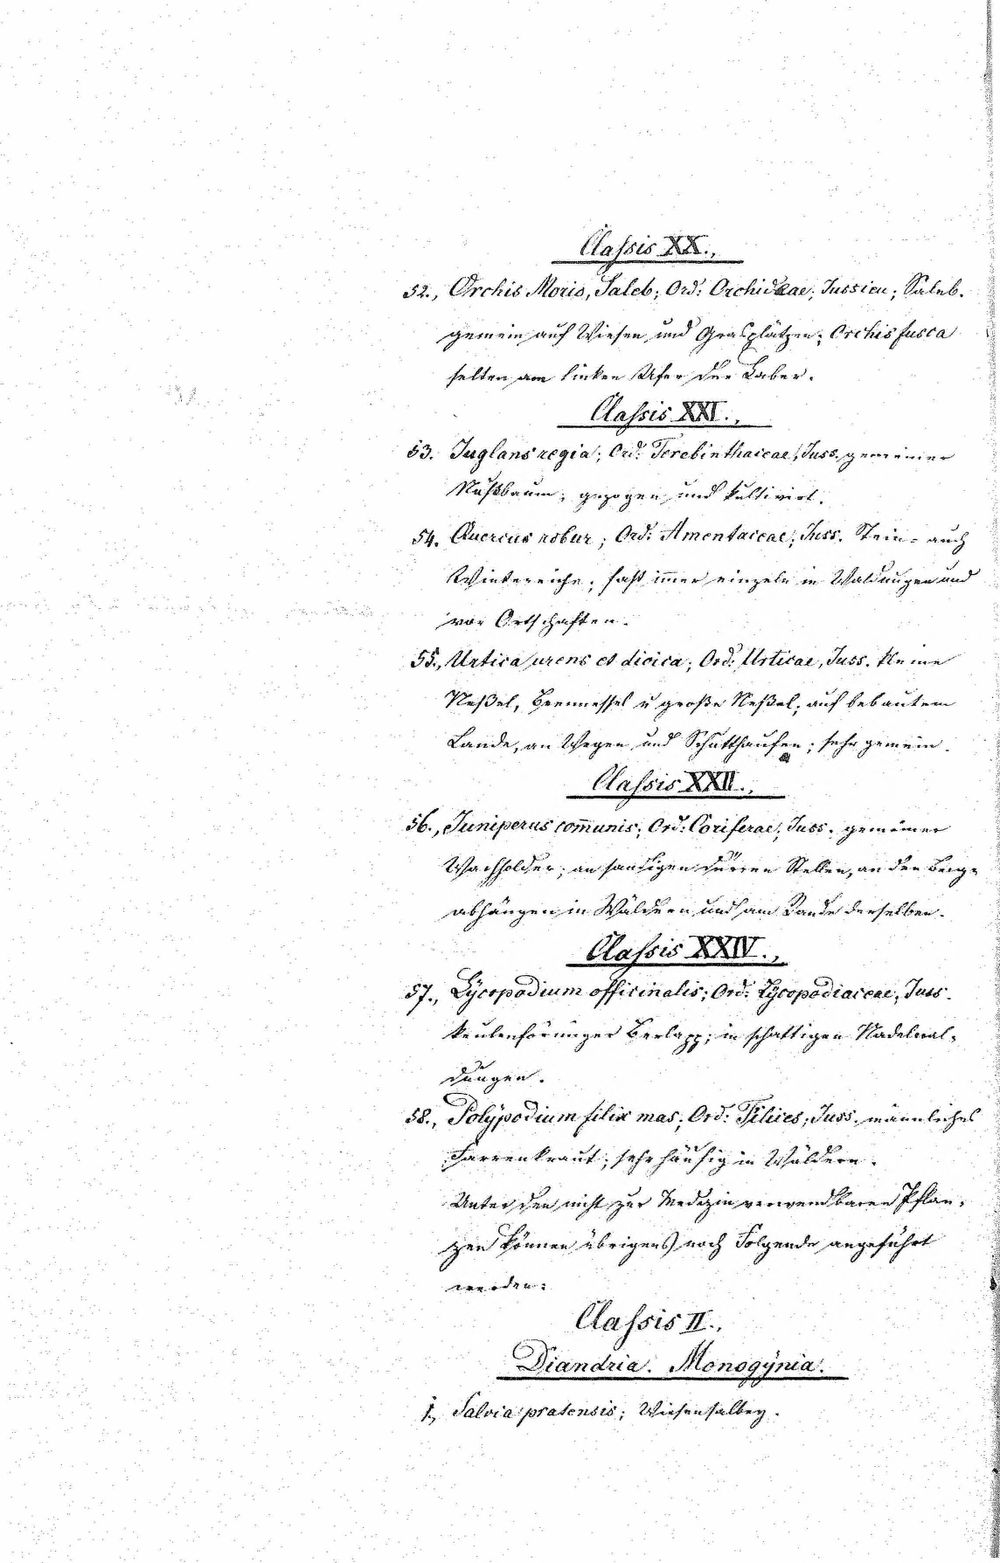 Classis XX.,
52., Orchis Morio, Saleb; Ord: Orchideae; Jussieu; Saleb.
gemein auf Wiesen und Grasplätzen; Orchis fusca
selten am linken Ufer der Laber.
Classis XXI.,
53. Juglans regia; Ord: Terebinthaceae; Juss. gemeiner
Nußbaum; gezogen und kultivirt.
54. Quercus robur; Ord: Amentaceae; Juss. Stein- auch
Wintereiche; fast im̄er einzeln in Waldungen und
vor Ortschaften.
55., Urtica urens et dioica; Ord: Urticae, Juss. kleine
Neßel, Brennessel u große Neßel; auf bebautem
Lande, an Wegen und Schutthaufen; sehr gemein.
Classis XXII.,
56., Juniperus com̄unis; Ord: Coniferae; Juss. gemeiner
Wachholder; an sandigen dürren Stellen, an den Berg-
abhängen in Wäldern und am Rande derselben.
Classis XXIV.,
57., Lycopodium officinalis; Ord: Lycopodiaceae, Juss.
keulenförmiger Berlapp; in schattigen Nadelwal-
dungen.
58., Polypodium filix mas; Ord: Filices; Juss. männliches
Farrenkraut; sehr häufig in Wäldern.
Unter den nicht zur Medizin verwendbaren Pflan-
zen können übrigens noch Folgende angeführt
werden:
Classis II.,
Diandria. Monogynia.
1., Salvia pratensis; Wiesensalbey.